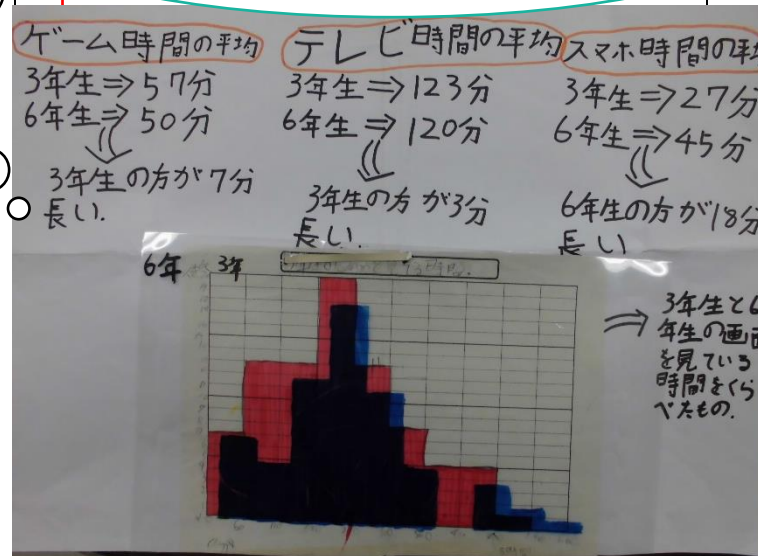 ゲーム時間の平均
3年生⇒57分
6年生⇒50分
3年生の方が7分
長い.
テレビ時間の平均
3年生⇒123分
6年生⇒120分
3年生の方が3分
長い.
スマホ時間の平均
3年生⇒27分
6年生⇒45分
6年生の方が18分
長い
6年 3年
⇒3年生と6
年生の画面
を見ている
時間をくら
べたもの.